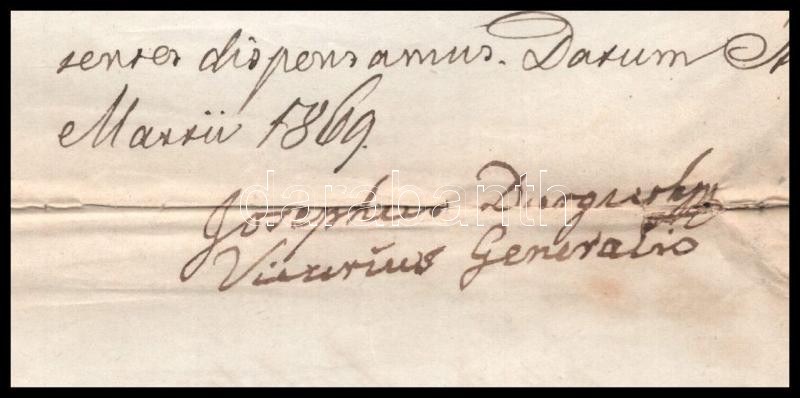 sentes dispensamus. Datum
Martii 1869.
Josephus
Vicarius Generalis
darabanth